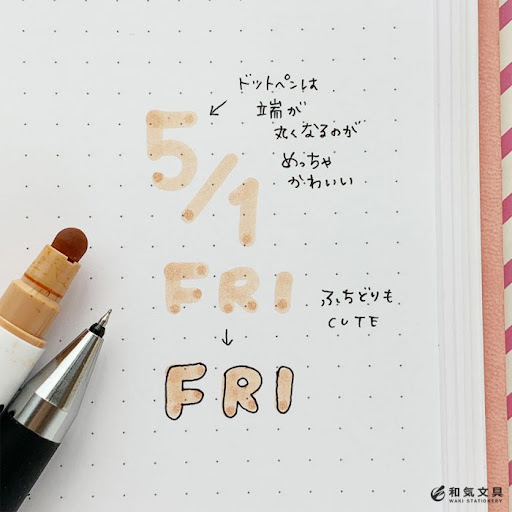 ドットペンは
端が
丸くなるのが
めっちゃ
かわいい
5/1
FRI
ふちどりも
CUTE
FRI
和気文具
WAKI STATIONERY